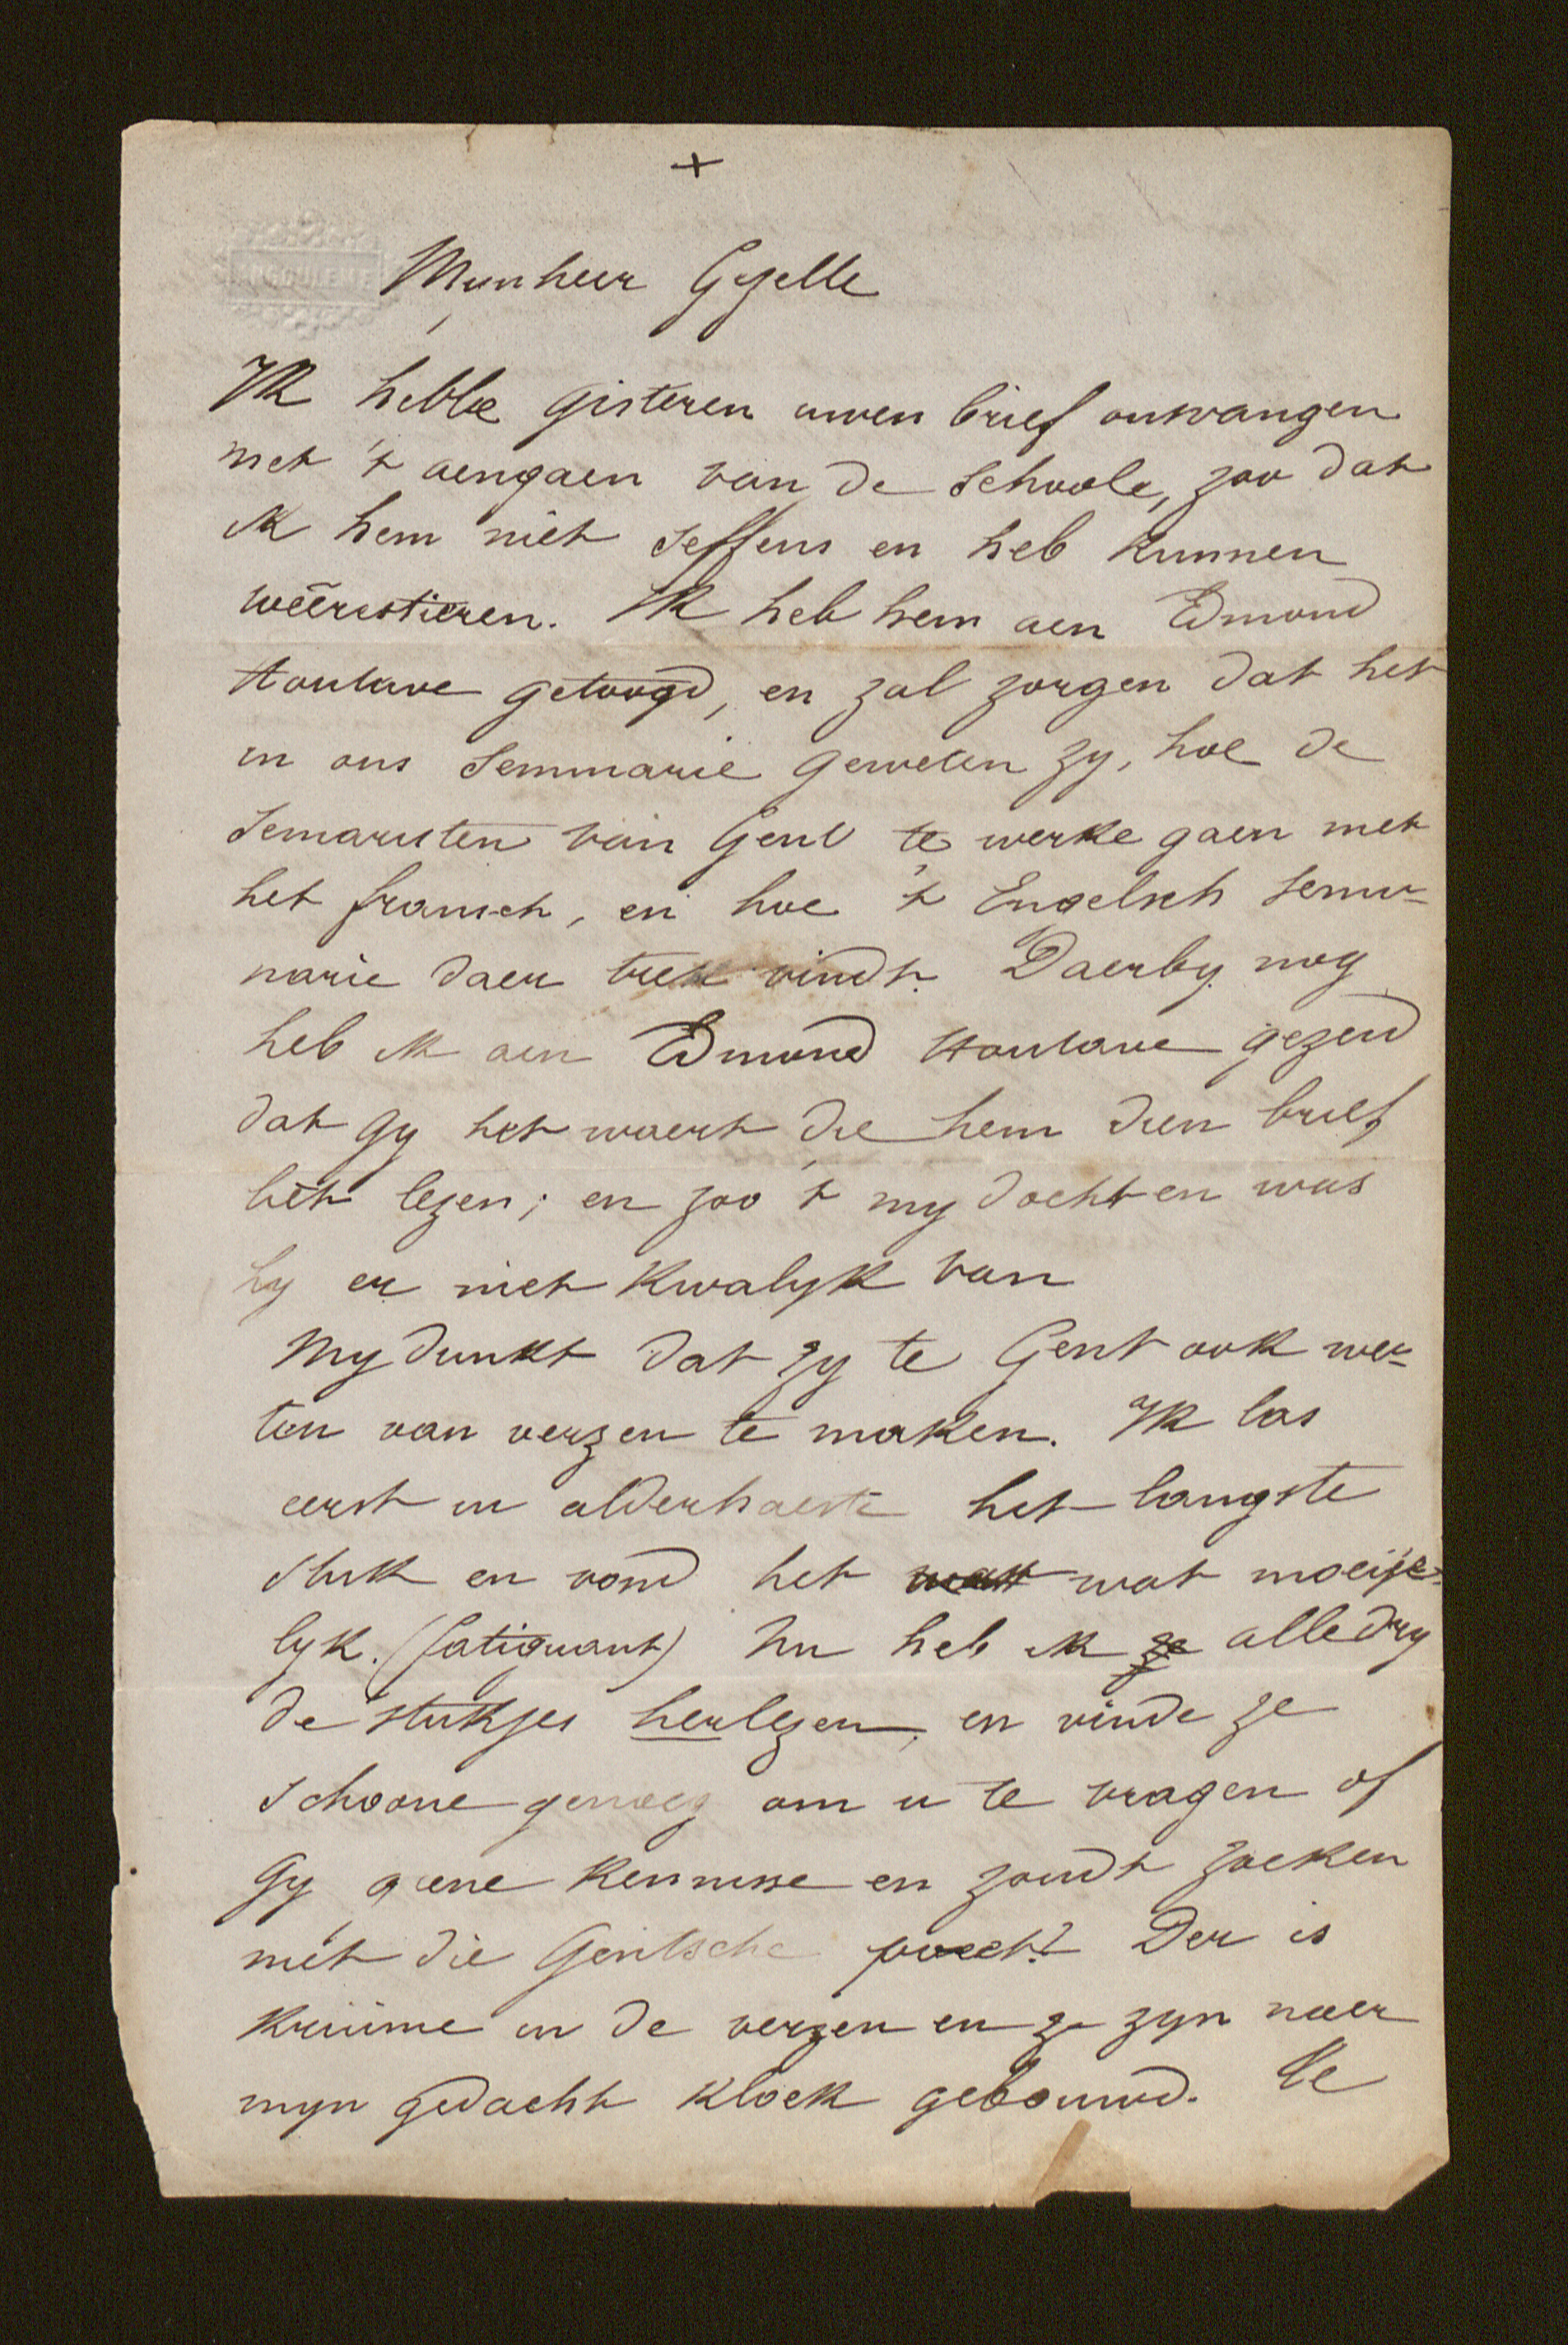 +
ANGOULEME
Mynheer Gezelle
Ik hebbe gisteren uwen brief ontvangen
met 't aengaen van de schoole, zoo dat
ik hem niet seffens en heb kunnen
wêerestieren. Ik heb hem aen Edmond
Houtave getoogd, en zal zorgen dat het
in ons Semmarie geweten zy, hoe de
Semaristen van Gend te werke gaen met
het fransch, en hoe 't Engelsch semi-
narie daer trek vindt. Daerby nog
heb ik aen Edmond Houtave gezeid
dat gy het waert die hem dien brief
liet lezen; en zoo 't my dochten was
hy er niet kwalyk van
My dunkt dat zy te Gent ook we-
ten van verzen te maken. Ik las
eerst in alderhaeste het langste
stuk en vond het wat moeije-
lyk. (fatiguant) Nu heb ik ze alledry
de stukjes herlezen, en vinde ze
schoone genoeg om u te vragen of
gy geene kennisse en zoudt zoeken
met die Gentsche poëet? Der is
kruime in de verzen en ze zyn naer
myn gedacht kloek gebouwd. Le